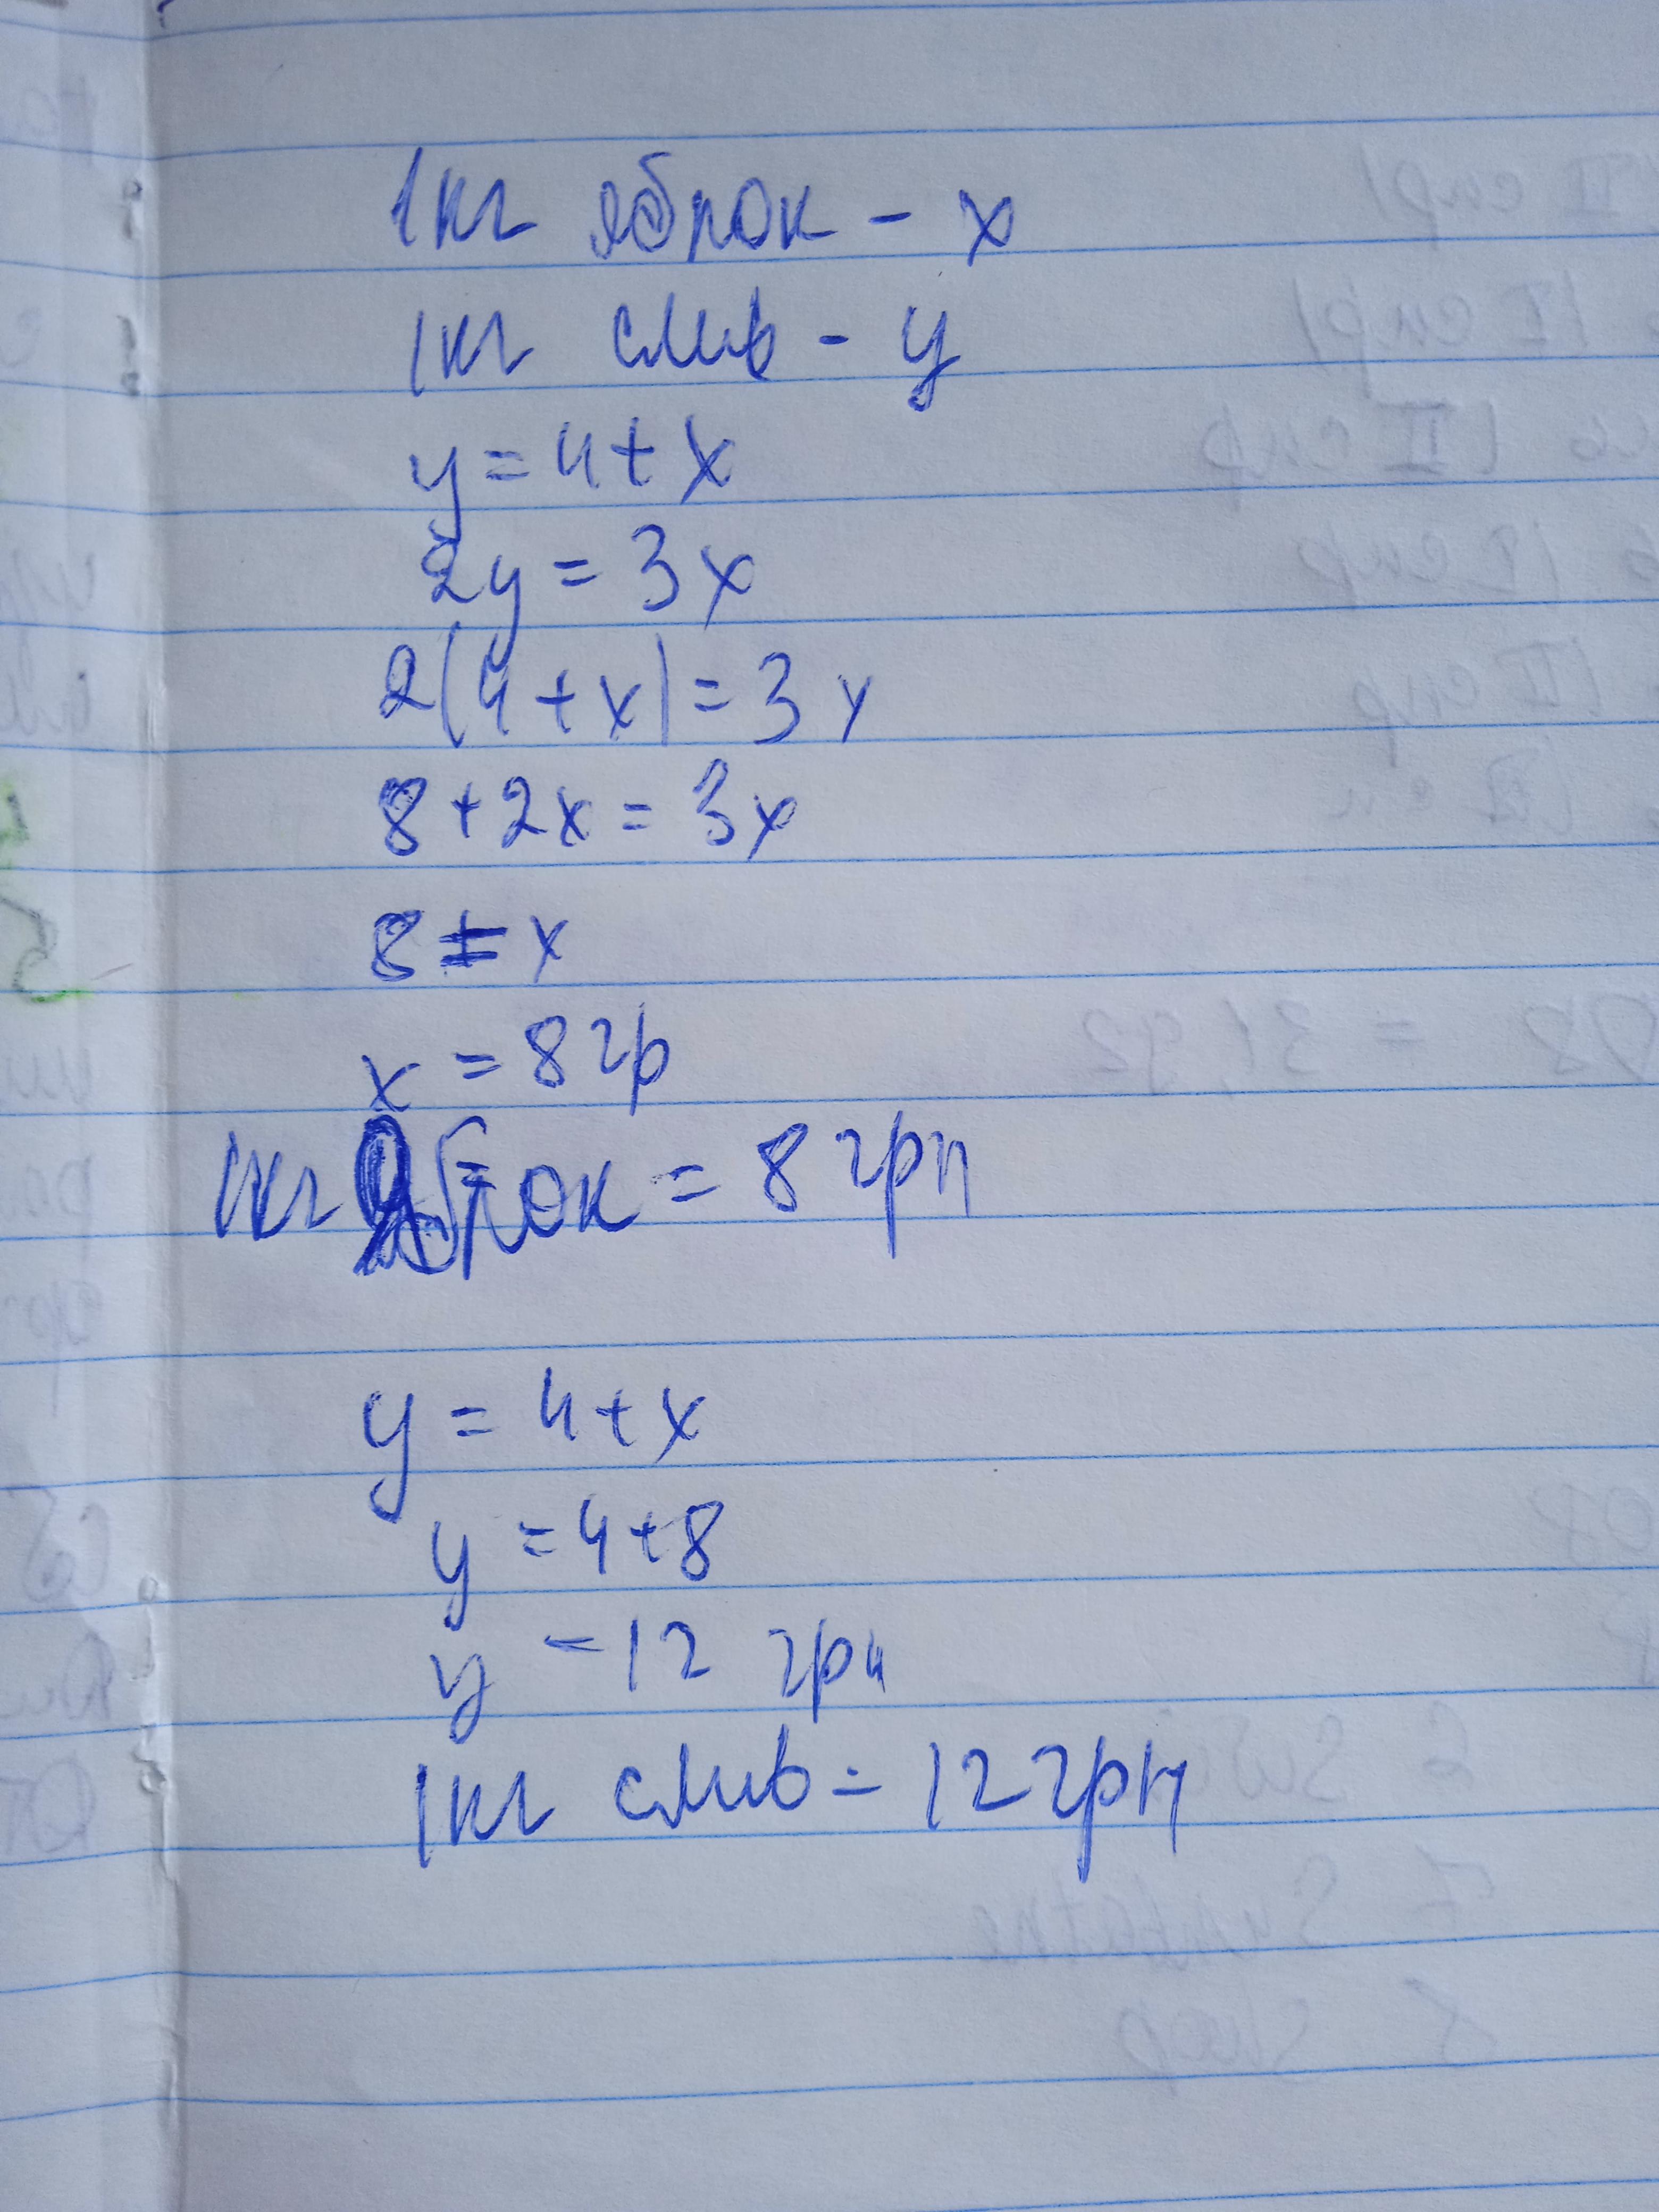 1кг яблок - x
1кг слив - y
y = 4 + x
2y = 3x
2(4 + x) = 3x
8 + 2x = 3x
8 = x
x = 8 гр
1кг яблок = 8 грн
y = 4 + x
y = 4 + 8
y = 12 грн
1кг слив = 12 грн